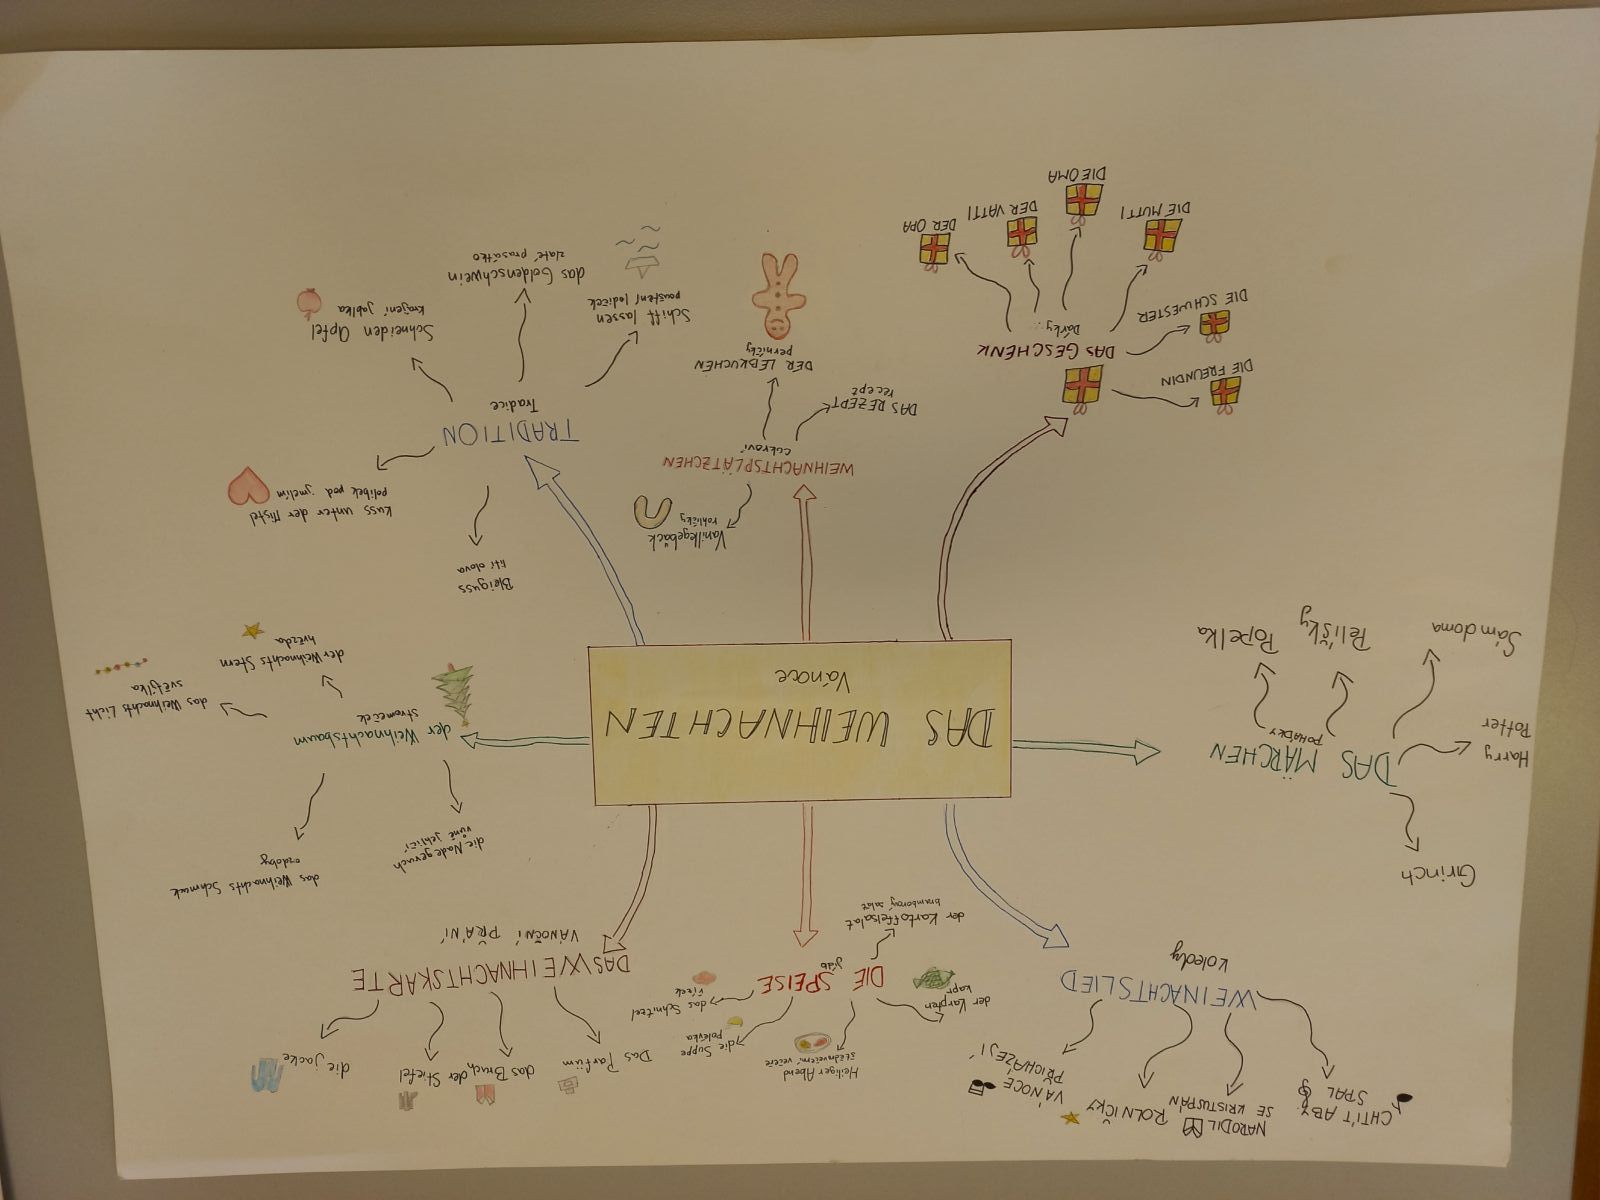 DAS WEIHNACHTEN
Vánoce
WEINACHTSLIED
koledy
CHTÍT ABY
SPAL
NARODIL
SE KRISTUSPÁN
ROLNIČKY
VÁNOCE
PŘICHÁZEJÍ
DIE SPEISE
jídlo
der Karpfen
kapr
Heiliger Abend
die Suppe
polévka
das Schnitzel
řízek
der Kartoffelsalat
bramborový salát
DAS WEIHNACHTSKARTE
VÁNOČNÍ PŘÁNÍ
Das Parfüm
das Bruch
der Stiefel
die Jacke
der Weihnachtsbaum
stromeček
die Nadegeruch
vůně jehličí
das Weihnachts Schmuck
ozdoby
das Weihnachts Licht
světýlka
der Weihnachts Stern
hvězda
TRADITION
Tradice
Bleiguss
lití olova
Kuss unter der Mistel
polibek pod jmelím
Schneiden Apfel
Krájení jablka
das Goldenschwein
zlaté prasátko
Schiff lassen
pouštění lodiček
WEIHNACHTSPLÄTZCHEN
cukroví
Vanillegebäck
rohlíčky
DER LEBKUCHEN
perníčky
DAS REZEPT
recept
DAS GESCHENK
Dárky
DIE FREUNDIN
DIE SCHWESTER
DIE MUTTI
DIE OMA
DER VATTI
DER OPA
DAS MÄRCHEN
POHÁDKY
Grinch
Harry
Potter
Sám doma
Pelíšky
Popelka